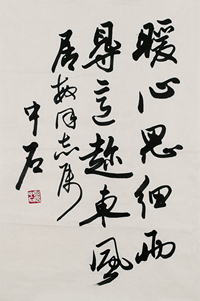 暖心思细雨
寻意趁东风
居敏同志属
中石